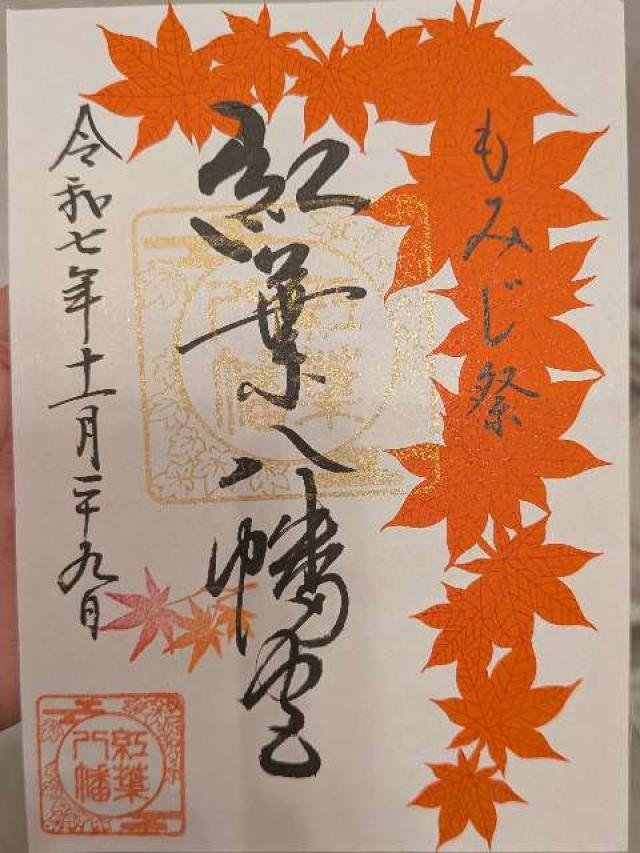 もみじ祭
紅葉八幡宮
令和七年十一月二十九日
紅葉
八幡
紅葉
八幡